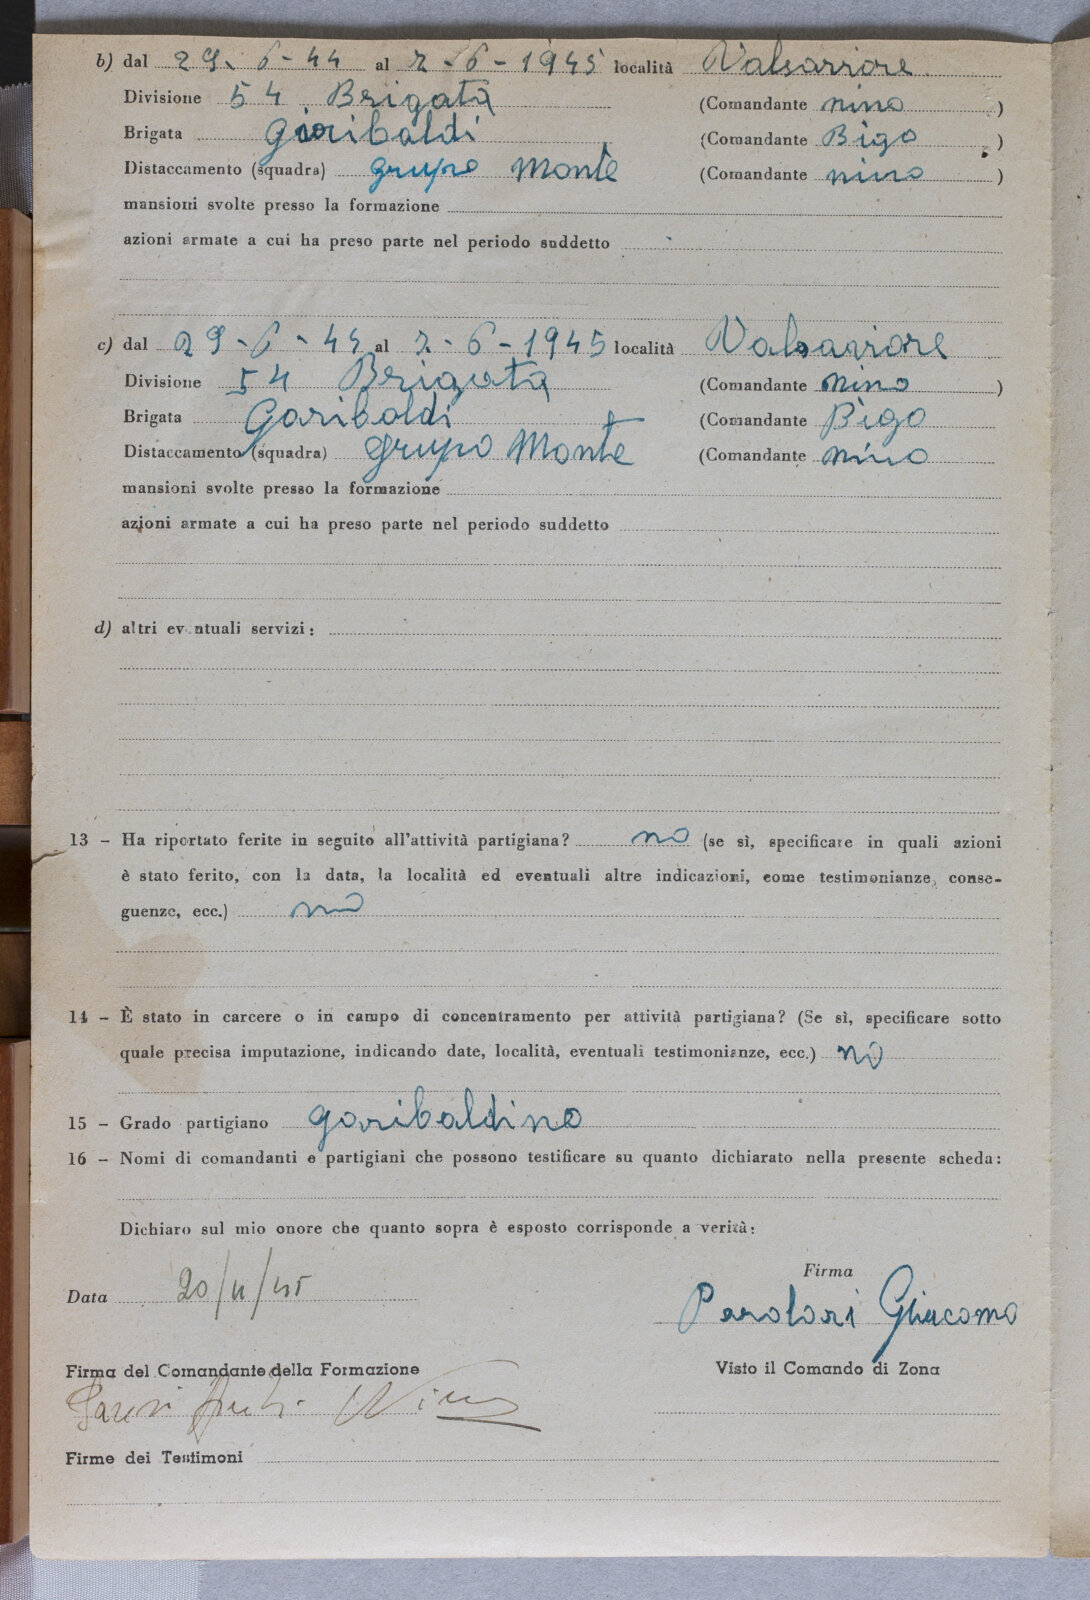 b) dal 29-6-44 al 2-6-1945 località Valsaviore
Divisione 54 Brigata (Comandante nino )
Brigata Garibaldi (Comandante Bigo )
Distaccamento (squadra) grupo Monte (Comandante nino )
mansioni svolte presso la formazione
azioni armate a cui ha preso parte nel periodo suddetto
c) dal 29-6-44 al 2-6-1945 località Valsaviore
Divisione 54 Brigata (Comandante nino )
Brigata Garibaldi (Comandante Bigo
Distaccamento (squadra) grupo Monte (Comandante nino
mansioni svolte presso la formazione
azioni armate a cui ha preso parte nel periodo suddetto
d) altri eventuali servizi:
13 - Ha riportato ferite in seguito all'attività partigiana? no (se sì, specificare in quali azioni
è stato ferito, con la data, la località ed eventuali altre indicazioni, come testimonianze, conse-
guenze, ecc.) no
14 - È stato in carcere o in campo di concentramento per attività partigiana? (Se sì, specificare sotto
quale precisa imputazione, indicando date, località, eventuali testimonianze, ecc.) no
15 - Grado partigiano garibaldino
16 - Nomi di comandanti e partigiani che possono testificare su quanto dichiarato nella presente scheda:
Dichiaro sul mio onore che quanto sopra è esposto corrisponde a verità:
Firma
Data 20/11/45
Parolari Giacomo
Firma del Comandante della Formazione Visto il Comando di Zona
Nino
Firme dei Testimoni